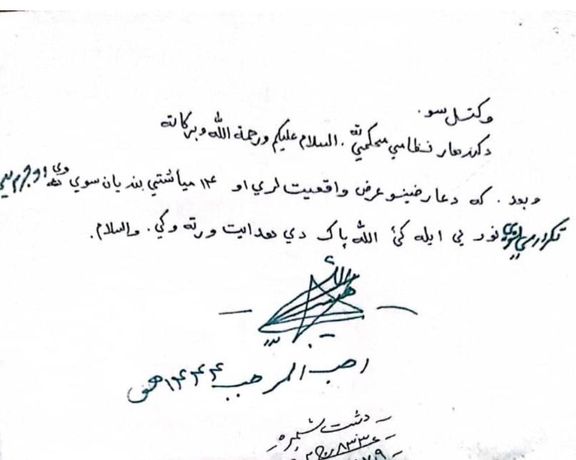 وکتل سو.
دکندهار نظامي محکمې ته. السلام علیکم ورحمة الله وبرکاته
و بعد. که دعارضینو عرض واقعیت لري او ۱۴ میاشتي بندیان سوي وي او جرم یې
تکراري نوی نور یې ایله کئ الله پاک دي هدایت ورته وکي. والسلام.
رجب المرجب ۱۴۴۴ هق
دثبت شمېره